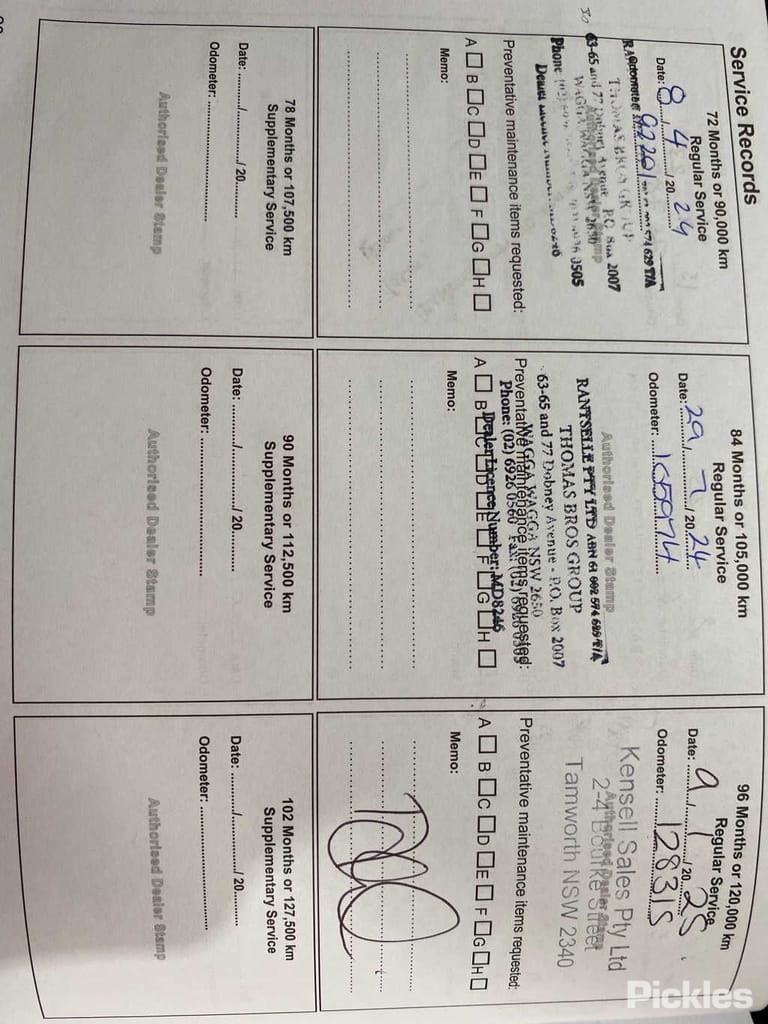 Service Records
72 Months or 90,000 km
Regular Service
Date: 8 / 4 / 20 24
Odometer: 92201
574 629 T/A
THOMAS BROS GROUP
63-65 and 77 Dobney Avenue P.O. Box 2007
WAGGA WAGGA NSW 2650
Phone
0505
Authorised Dealer Stamp
Preventative maintenance items requested:
A □ B □ C □ D □ E □ F □ G □ H □
Memo:
78 Months or 107,500 km
Supplementary Service
Date: ........./........./ 20.........
Odometer: ..............................
Authorised Dealer Stamp
84 Months or 105,000 km
Regular Service
Date: 29 / 7 / 20 24
Odometer: 105974
Authorised Dealer Stamp
RANTSELLE PTY LTD ABN 61 002 574 629 T/A
THOMAS BROS GROUP
63-65 and 77 Dobney Avenue - P.O. Box 2007
WAGGA WAGGA NSW 2650
Preventative maintenance items requested:
Phone: (02) 6926 0560 Fax: 6926 0505
Dealer Licence Number: MD8246
A □ B □ C □ D □ E □ F □ G □ H □
Memo:
90 Months or 112,500 km
Supplementary Service
Date: ........./........./ 20.........
Odometer: ..............................
Authorised Dealer Stamp
96 Months or 120,000 km
Regular Service
Date: 9 / 1 / 20 25
Odometer: 128315
Kensell Sales Pty Ltd
Authorised Dealer Stamp
2-4 Bourke Street
Tamworth NSW 2340
Preventative maintenance items requested:
A □ B □ C □ D □ E □ F □ G □ H □
Memo:
102 Months or 127,500 km
Supplementary Service
Date: ........./........./ 20.........
Odometer: ..............................
Authorised Dealer Stamp
Pickles